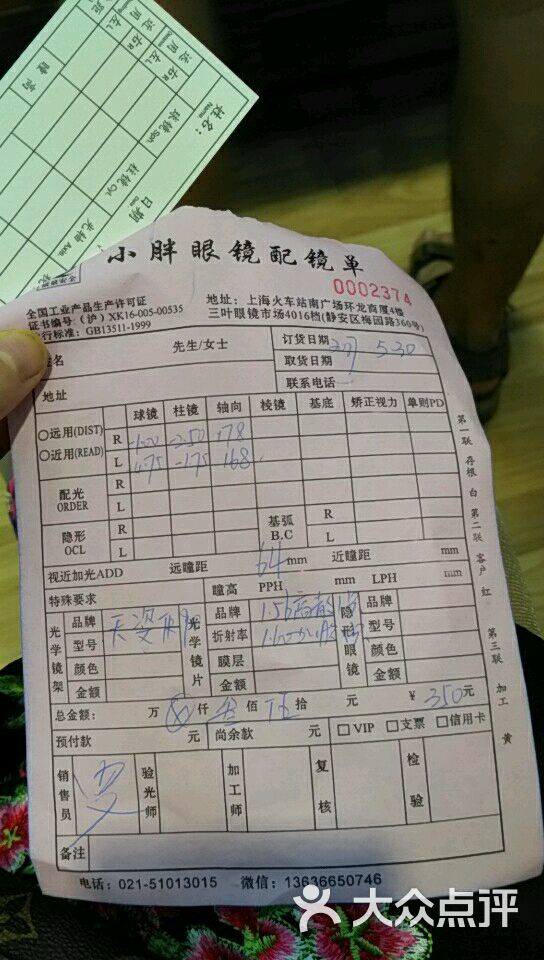 姓名:
Name
日期
Date
球镜 Sph
柱镜 Cyl
光轴 Axis
瞳高
小胖眼镜配镜单
0002374
质量安全
全国工业产品生产许可证
证书编号:(沪)XK16-005-00535
行标准:GB13511-1999
地址:上海火车站南广场环龙商厦4楼
三叶眼镜市场4016档(静安区梅园路360号)
姓名 先生/女士
订货日期
取货日期 5.30
地址
联系电话
球镜 柱镜 轴向 棱镜 基底 矫正视力 单侧PD
○远用(DIST) R -1.00 -2.50 178
○近用(READ) L -1.75 168
配光 ORDER R
L
隐形 OCL R
L
基弧 B.C R
L
视近加光ADD 远瞳距 64 mm 近瞳距 mm
特殊要求 瞳高 PPH mm LPH mm
光学镜架
品牌 天姿
型号
颜色
金额
光学镜片
品牌 1.56
折射率
膜层
金额
隐形眼镜
品牌
型号
颜色
金额
总金额: 万 ⊗ 仟 叁 佰 伍 拾 元 ¥ 350元
预付款 元 尚余款 元 □VIP □支票 □信用卡
销售员
验光师
加工师
复核
检验
备注
第一联 存根 白 第二联 客户 红 第三联 加工 黄
电话:021-51013015 微信:13636650746
大众点评